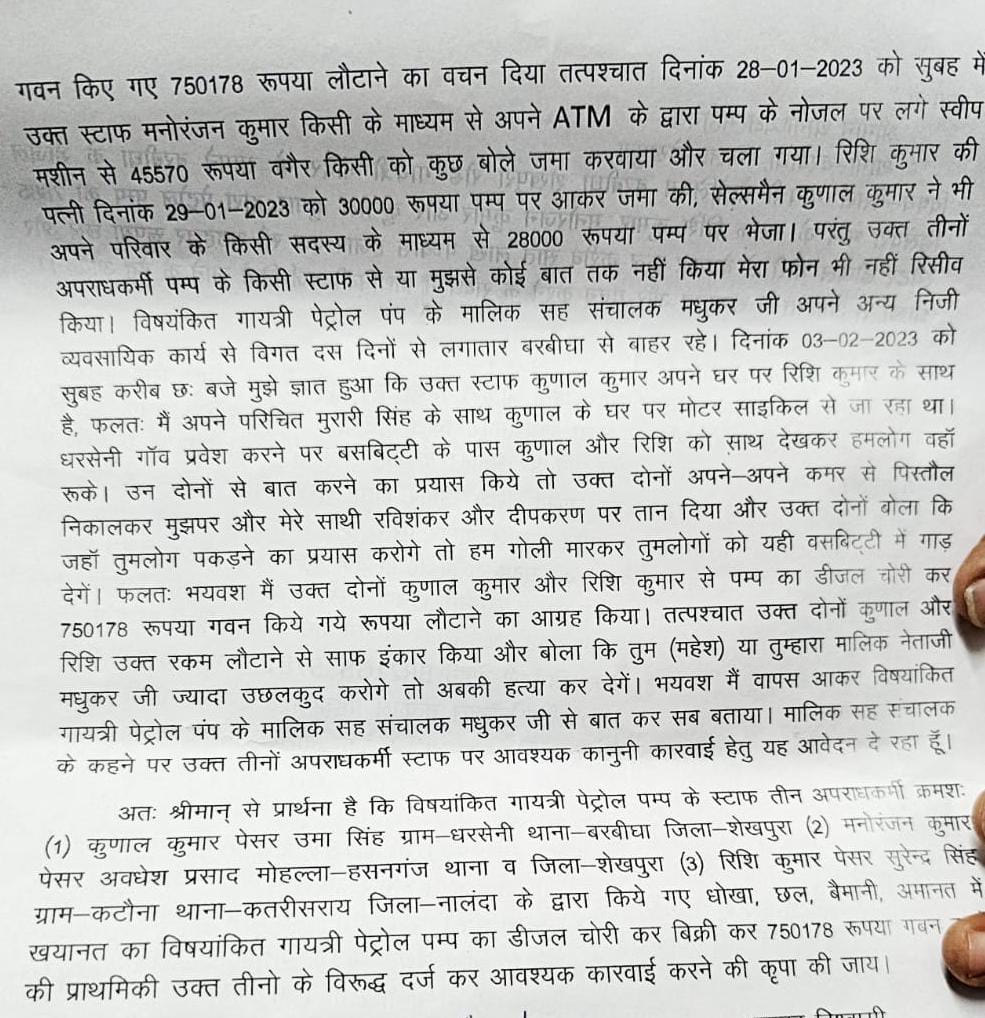 गवन किए गए 750178 रूपया लौटाने का वचन दिया तत्पश्चात दिनांक 28-01-2023 को सुबह में
उक्त स्टाफ मनोरंजन कुमार किसी के माध्यम से अपने ATM के द्वारा पम्प के नोजल पर लगे स्वीप
मशीन से 45570 रूपया वगैर किसी को कुछ बोले जमा करवाया और चला गया। रिशि कुमार की
पत्नी दिनांक 29-01-2023 को 30000 रूपया पम्प पर आकर जमा की, सेल्समैन कुणाल कुमार ने भी
अपने परिवार के किसी सदस्य के माध्यम से 28000 रूपया पम्प पर भेजा। परंतु उक्त तीनों
अपराधकर्मी पम्प के किसी स्टाफ से या मुझसे कोई बात तक नहीं किया मेरा फोन भी नहीं रिसीव
किया। विषयंकित गायत्री पेट्रोल पंप के मालिक सह संचालक मधुकर जी अपने अन्य निजी
व्यवसायिक कार्य से विगत दस दिनों से लगातार बरबीघा से बाहर रहे। दिनांक 03-02-2023 को
सुबह करीब छः बजे मुझे ज्ञात हुआ कि उक्त स्टाफ कुणाल कुमार अपने घर पर रिशि कुमार के साथ
है, फलतः मैं अपने परिचित मुरारी सिंह के साथ कुणाल के घर पर मोटर साइकिल से जा रहा था।
धरसेनी गॉव प्रवेश करने पर बसबिट्टी के पास कुणाल और रिशि को साथ देखकर हमलोग वहॉ
रूके। उन दोनों से बात करने का प्रयास किये तो उक्त दोनों अपने-अपने कमर से पिस्तौल
निकालकर मुझपर और मेरे साथी रविशंकर और दीपकरण पर तान दिया और उक्त दोनों बोला कि
जहॉ तुमलोग पकड़ने का प्रयास करोगे तो हम गोली मारकर तुमलोगों को यही वसबिट्टी में गाड़
देगें। फलतः भयवश मैं उक्त दोनों कुणाल कुमार और रिशि कुमार से पम्प का डीजल चोरी कर
750178 रूपया गवन किये गये रूपया लौटाने का आग्रह किया। तत्पश्चात उक्त दोनों कुणाल और
रिशि उक्त रकम लौटाने से साफ इंकार किया और बोला कि तुम (महेश) या तुम्हारा मालिक नेताजी
मधुकर जी ज्यादा उछलकुद करोगे तो अबकी हत्या कर देगें। भयवश मैं वापस आकर विषयांकित
गायत्री पेट्रोल पंप के मालिक सह संचालक मधुकर जी से बात कर सब बताया। मालिक सह संचालक
के कहने पर उक्त तीनों अपराधकर्मी स्टाफ पर आवश्यक कानुनी कारवाई हेतु यह आवेदन दे रहा हूॅ।
अतः श्रीमान् से प्रार्थना है कि विषयांकित गायत्री पेट्रोल पम्प के स्टाफ तीन अपराधकर्मी क्रमशः
(1) कुणाल कुमार पेसर उमा सिंह ग्राम-धरसेनी थाना-बरबीघा जिला-शेखपुरा (2) मनोरंजन कुमार
पेसर अवधेश प्रसाद मोहल्ला-हसनगंज थाना व जिला-शेखपुरा (3) रिशि कुमार पेसर सुरेन्द्र सिंह
ग्राम-कटौना थाना-कतरीसराय जिला-नालंदा के द्वारा किये गए धोखा, छल, बैमानी, अमानत में
खयानत का विषयांकित गायत्री पेट्रोल पम्प का डीजल चोरी कर बिक्री कर 750178 रूपया गबन
की प्राथमिकी उक्त तीनो के विरूद्ध दर्ज कर आवश्यक कारवाई करने की कृपा की जाय।